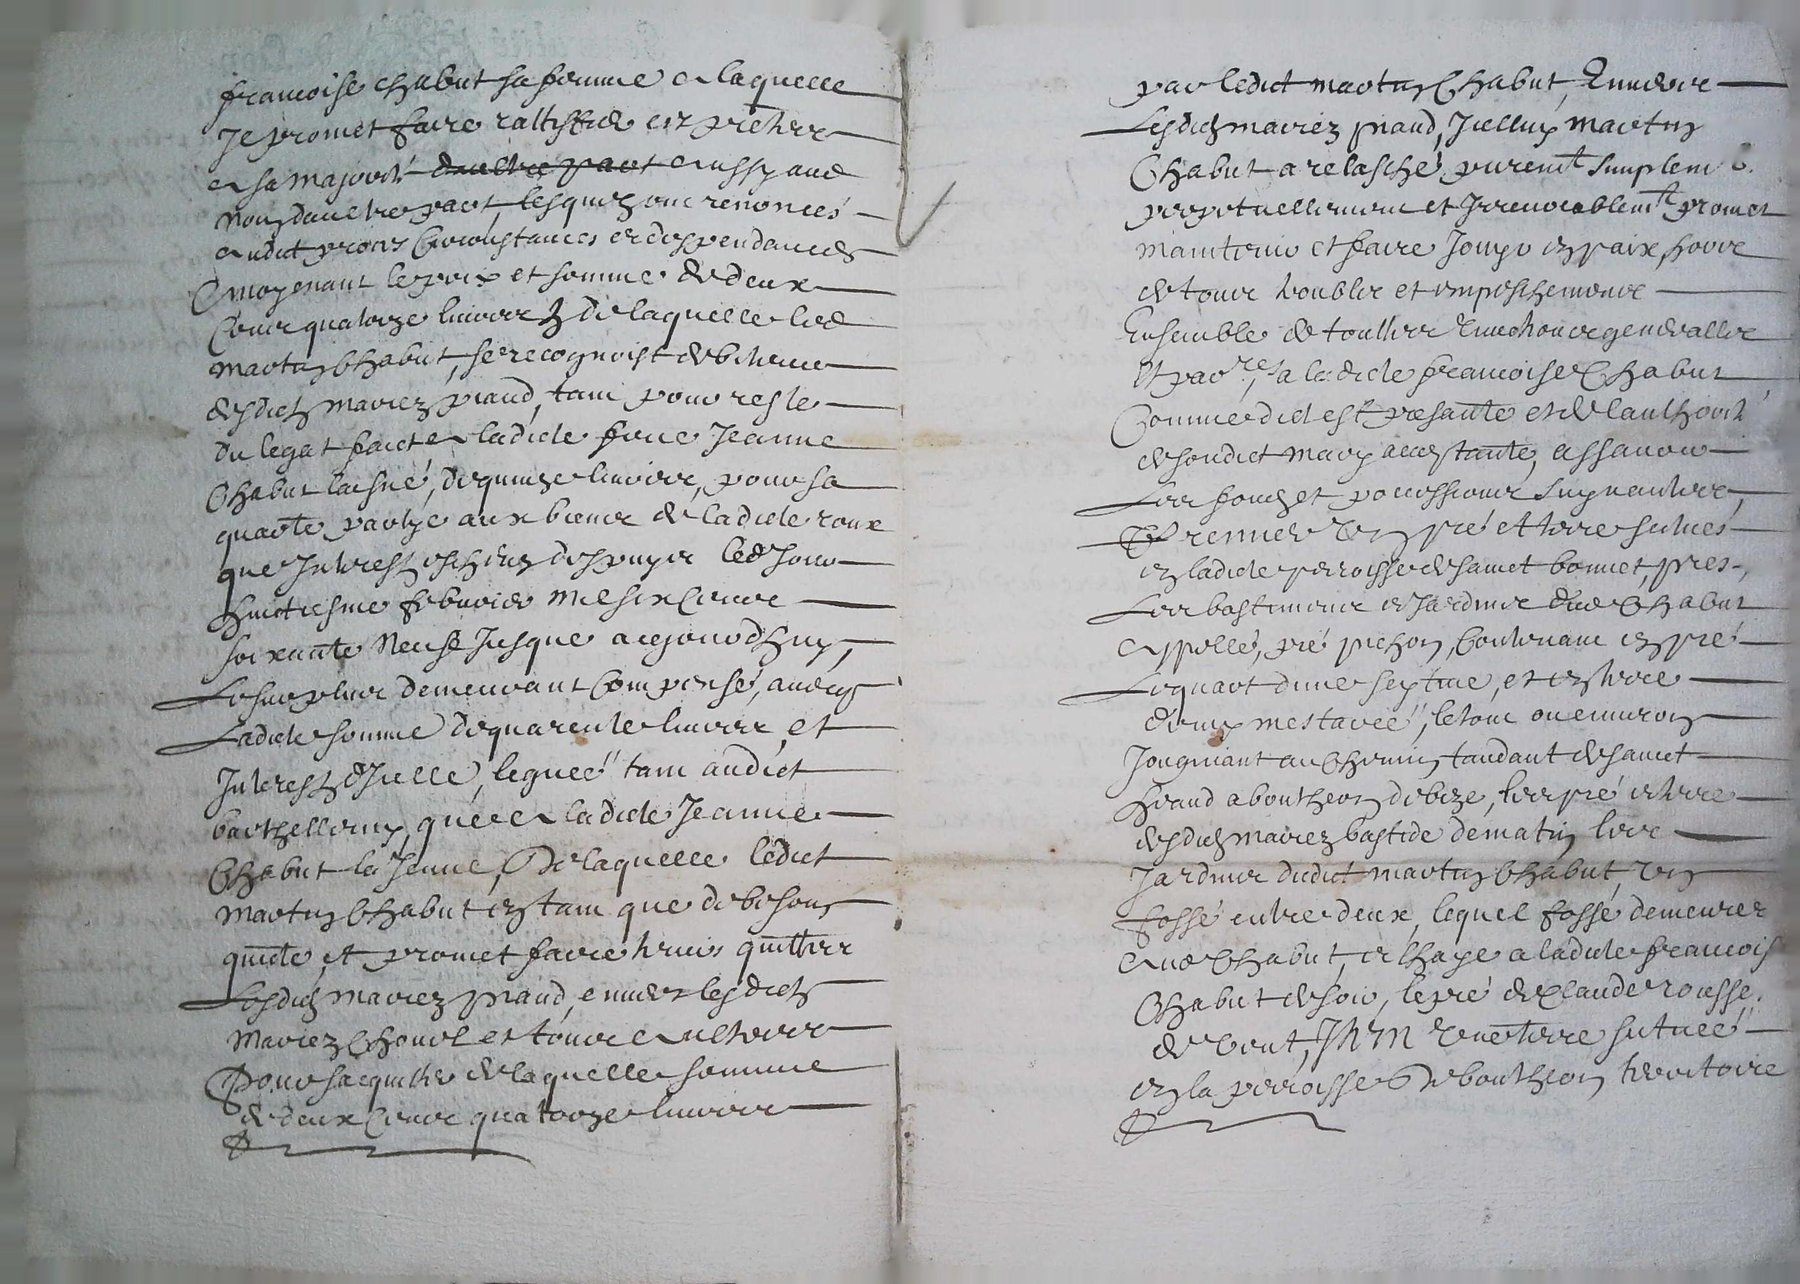 francoise chabut sa femme a laquelle
Je promet faire rattiffier es presentes
a sa majorité daultre part aussy aud
nom daultre part, lesquelz ont renoncés
audict proces circonstances et despendances
moyenant le prix et somme de deux
cents quatorze livres de laquelle led
martin Chabut, se recognoist debiteur
desdictz mariez piaud, tant pour reste
du legat faict a ladicte feue Jeanne
Chabut laisné, de quinze livres, pour sa
quarte partye aux biens de ladicte roux
que Intrestz escheuz despuys led Jour
huictiesme febvrier mil six cents
soixante neuf Jusque a aujourdhuy,
Le surplus demeurant compensé, avecq
Ladicte somme de quarente livres, et
Intrestz dIcelle, leguée tant audict
barthellemy, que a ladicte Jeanne
Chabut la Jeune, De laquelle ledict
martin Chabut en tant que de besoing
quicte, et promet faire tenir quitte
Lesdictz mariez piaud, envers lesdictz
mariez et tous aultres
Pour sacquitter de laquelle somme
de deux cents quatorze livres
par ledict martin Chabut, Envers
Lesdictz mariez piaud, Icelluy martin
Chabut a relasché, puremt simplemt
perpetuellement et Irrevocablemt promet
maintenir et faire Jouyr en paix, hors
de tous troubles et empeschements
Ensemble de touttes evictions generalles
et parres, a ladicte francoise Chabut
Comme dict est presante et de lauthorité
de sondict mary acceptante, assavoir
Les fondz et possessions suyvantes,
Et premier un pré et terre situés
en ladicte perroisse de sainct bonnet, pres
Les bastiments et Jardins dud Chabut
appellé, pré pichon, contenant en pré
Le quart dune septine, et en terre
deux mestarée, le tout ou environ
Jougniant au chemin tandant de sainct
heand a boutheon de bize, les pré et terre
desdictz mariez bastide de matin les
Jardins dudict martin Chabut, un
fossé entre deux, lequel fossé demeurer
aud Chabut, et lhaye a ladicte francois
Chabut de soir, le pré de Claude rousse
de vent, Itm une terre situee
en la perroisse de boutheon territoire